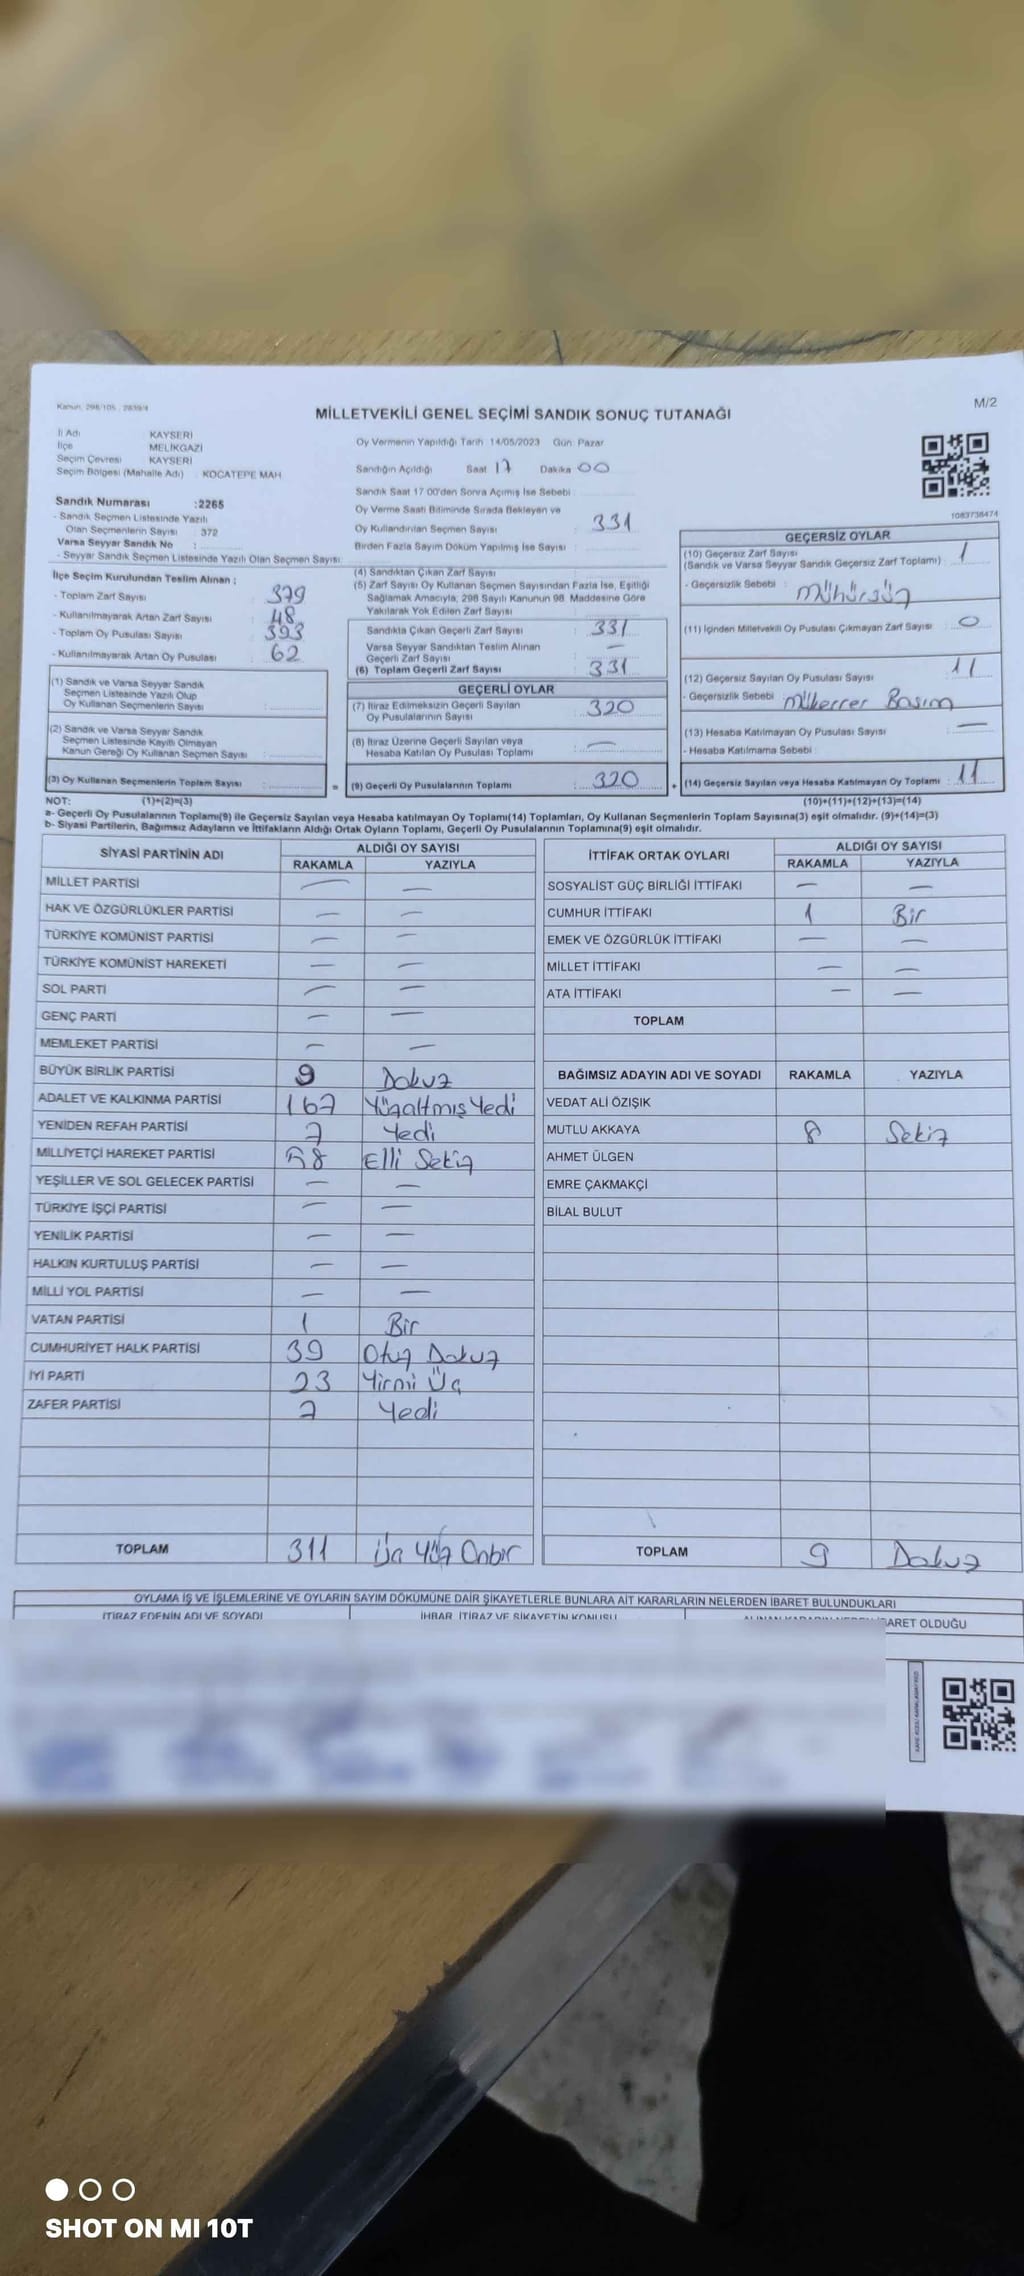 Kanun: 298/105 - 2839/4
M/2
MİLLETVEKİLİ GENEL SEÇİMİ SANDIK SONUÇ TUTANAĞI
İl Adı KAYSERİ
İlçe MELİKGAZİ
Seçim Çevresi KAYSERİ
Seçim Bölgesi (Mahalle Adı) : KOCATEPE MAH
Sandık Numarası :2265
- Sandık Seçmen Listesinde Yazılı
Olan Seçmenlerin Sayısı : 372
Varsa Seyyar Sandık No :
- Seyyar Sandık Seçmen Listesinde Yazılı Olan Seçmen Sayısı:
Oy Vermenin Yapıldığı Tarih 14/05/2023 Gün: Pazar
Sandığın Açıldığı Saat 17 Dakika 00
Sandık Saat 17 00'den Sonra Açımış İse Sebebi :
Oy Verme Saati Bitiminde Sırada Bekleyen ve
Oy Kullandırılan Seçmen Sayısı : 331
Birden Fazla Sayım Döküm Yapılmış İse Sayısı :
1083738474
İlçe Seçim Kurulundan Teslim Alınan ;
- Toplam Zarf Sayısı : 379
- Kullanılmayarak Artan Zarf Sayısı : 48
- Toplam Oy Pusulası Sayısı : 393
- Kullanılmayarak Artan Oy Pusulası : 62
(1) Sandık ve Varsa Seyyar Sandık
Seçmen Listesinde Yazılı Olup
Oy Kullanan Seçmenlerin Sayısı :
(2) Sandık ve Varsa Seyyar Sandık
Seçmen Listesinde Kayıtlı Olmayan
Kanun Gereği Oy Kullanan Seçmen Sayısı :
(3) Oy Kullanan Seçmenlerin Toplam Sayısı :
(4) Sandıktan Çıkan Zarf Sayısı :
(5) Zarf Sayısı Oy Kullanan Seçmen Sayısından Fazla İse, Eşitliği
Sağlamak Amacıyla; 298 Sayılı Kanunun 98. Maddesine Göre
Yakılarak Yok Edilen Zarf Sayısı :
Sandıkta Çıkan Geçerli Zarf Sayısı : 331
Varsa Seyyar Sandıktan Teslim Alınan
Geçerli Zarf Sayısı : —
(6) Toplam Geçerli Zarf Sayısı : 331
GEÇERLİ OYLAR
(7) İtiraz Edilmeksizin Geçerli Sayılan
Oy Pusulalarının Sayısı : 320
(8) İtiraz Üzerine Geçerli Sayılan veya
Hesaba Katılan Oy Pusulası Toplamı : —
= (9) Geçerli Oy Pusulalarının Toplamı : 320
GEÇERSİZ OYLAR
(10) Geçersiz Zarf Sayısı
(Sandık ve Varsa Seyyar Sandık Geçersiz Zarf Toplamı) : 1
- Geçersizlik Sebebi : Mühürsüz
(11) İçinden Milletvekili Oy Pusulası Çıkmayan Zarf Sayısı : 0
(12) Geçersiz Sayılan Oy Pusulası Sayısı : 11
- Geçersizlik Sebebi : Mükerrer Basım
(13) Hesaba Katılmayan Oy Pusulası Sayısı : —
- Hesaba Katılmama Sebebi :
+ (14) Geçersiz Sayılan veya Hesaba Katılmayan Oy Toplamı : 11
NOT: (1)+(2)=(3) (10)+(11)+(12)+(13)=(14)
a- Geçerli Oy Pusulalarının Toplamı(9) ile Geçersiz Sayılan veya Hesaba katılmayan Oy Toplamı(14) Toplamları, Oy Kullanan Seçmenlerin Toplam Sayısına(3) eşit olmalıdır. (9)+(14)=(3)
b- Siyasi Partilerin, Bağımsız Adayların ve İttifakların Aldığı Ortak Oyların Toplamı, Geçerli Oy Pusulalarının Toplamına(9) eşit olmalıdır.
SİYASİ PARTİNİN ADI ALDIĞI OY SAYISI
RAKAMLA YAZIYLA
MİLLET PARTİSİ — —
HAK VE ÖZGÜRLÜKLER PARTİSİ — —
TÜRKİYE KOMÜNİST PARTİSİ — —
TÜRKİYE KOMÜNİST HAREKETİ — —
SOL PARTİ — —
GENÇ PARTİ — —
MEMLEKET PARTİSİ — —
BÜYÜK BİRLİK PARTİSİ 9 Dokuz
ADALET VE KALKINMA PARTİSİ 167 Yüzaltmış Yedi
YENİDEN REFAH PARTİSİ 7 Yedi
MİLLİYETÇİ HAREKET PARTİSİ 58 Elli Sekiz
YEŞİLLER VE SOL GELECEK PARTİSİ — —
TÜRKİYE İŞÇİ PARTİSİ — —
YENİLİK PARTİSİ — —
HALKIN KURTULUŞ PARTİSİ — —
MİLLİ YOL PARTİSİ — —
VATAN PARTİSİ 1 Bir
CUMHURİYET HALK PARTİSİ 39 Otuz Dokuz
İYİ PARTİ 23 Yirmi Üç
ZAFER PARTİSİ 7 Yedi
TOPLAM 311 Üç Yüz Onbir
İTTİFAK ORTAK OYLARI ALDIĞI OY SAYISI
RAKAMLA YAZIYLA
SOSYALİST GÜÇ BİRLİĞİ İTTİFAKI — —
CUMHUR İTTİFAKI 1 Bir
EMEK VE ÖZGÜRLÜK İTTİFAKI — —
MİLLET İTTİFAKI — —
ATA İTTİFAKI — —
TOPLAM
BAĞIMSIZ ADAYIN ADI VE SOYADI RAKAMLA YAZIYLA
VEDAT ALİ ÖZIŞIK
MUTLU AKKAYA 8 Sekiz
AHMET ÜLGEN
EMRE ÇAKMAKÇİ
BİLAL BULUT
TOPLAM 9 Dokuz
OYLAMA İŞ VE İŞLEMLERİNE VE OYLARIN SAYIM DÖKÜMÜNE DAİR ŞİKAYETLERLE BUNLARA AİT KARARLARIN NELERDEN İBARET BULUNDUKLARI
İTİRAZ EDENİN ADI VE SOYADI İHBAR, İTİRAZ VE ŞİKAYETİN KONUSU ALINAN KARARIN NEDEN İBARET OLDUĞU
SHOT ON MI 10T